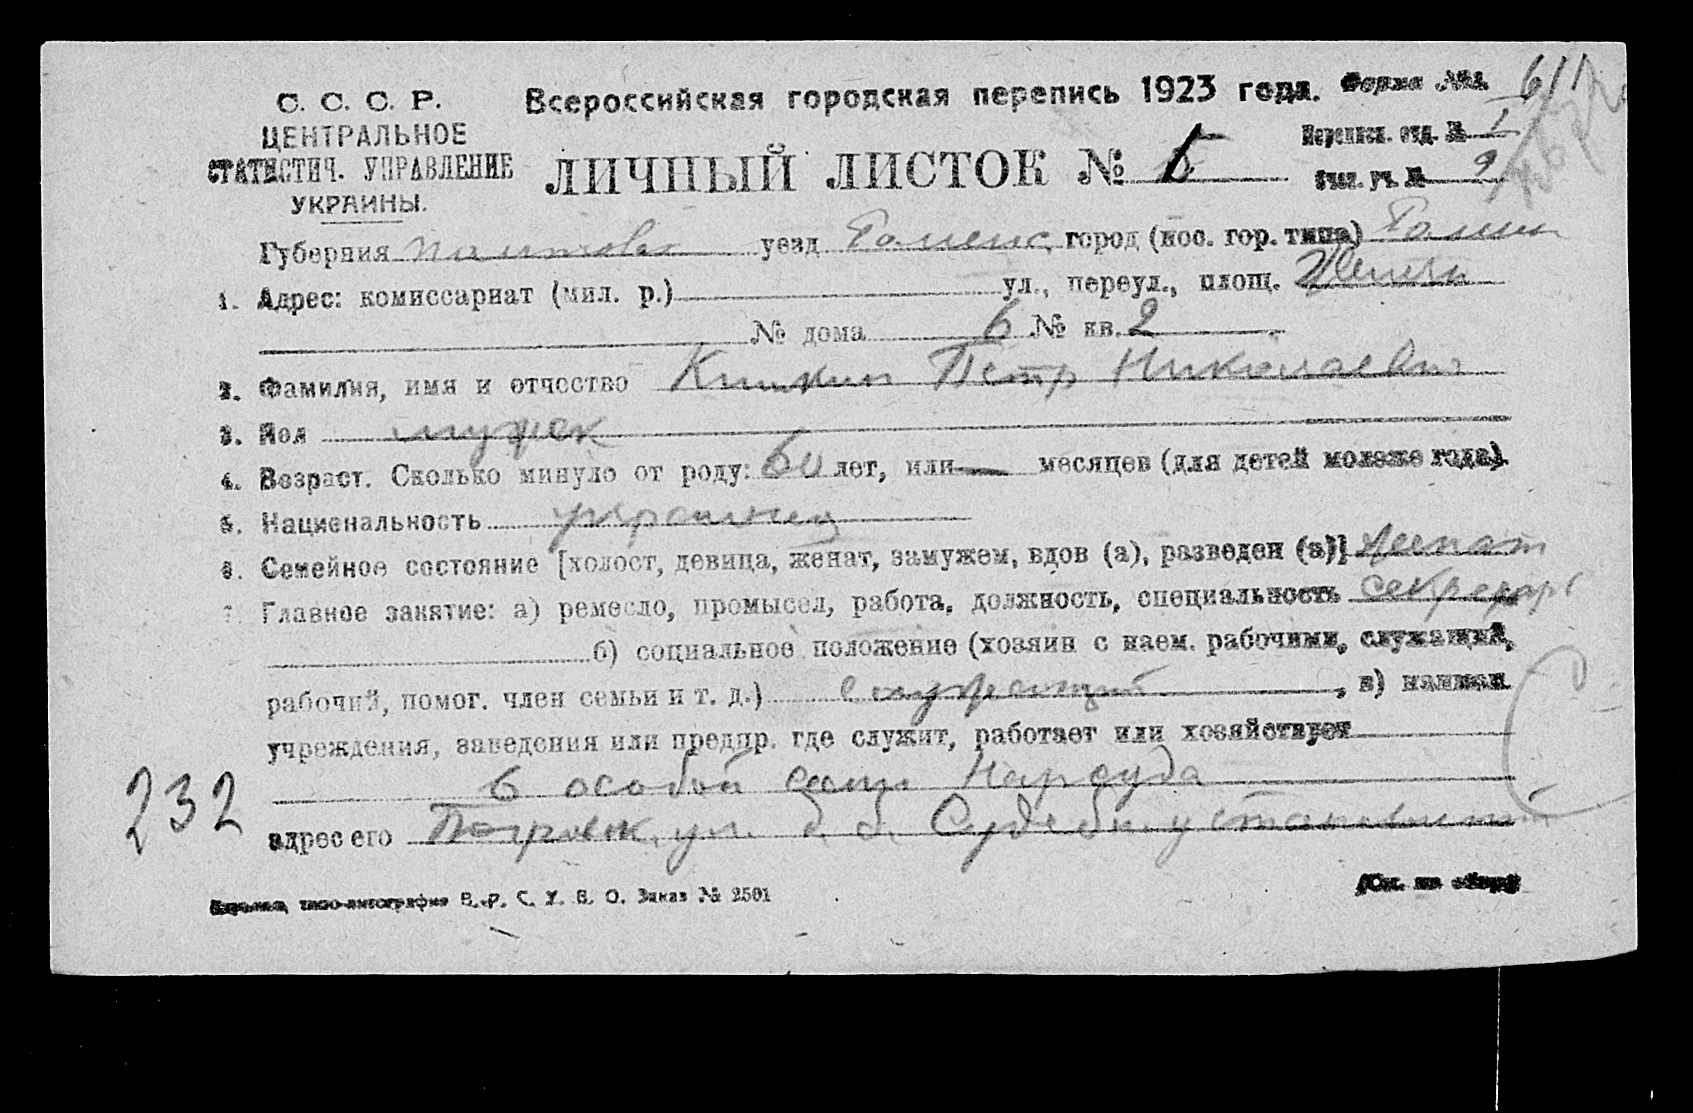 С. С. С. Р.
ЦЕНТРАЛЬНОЕ
СТАТИСТИЧ. УПРАВЛЕНИЕ
УКРАИНЫ.
Всероссийская городская перепись 1923 года. Форма №1.
611
ЛИЧНЫЙ ЛИСТОК № 5
Переписн. отд. № 1
Счет. уч. № 9
Губерния Полтовск уезд Роменс город (пос. гор. типа) Ромны
1. Адрес: комиссариат (мил. р.) ул., переул., площ.
№ дома 6 № кв. 2
2. Фамилия, имя и отчество Петр Николаевич
3. Пол мужск
4. Возраст. Сколько минуло от роду: 60 лет, или — месяцев (для детей моложе года).
5. Национальность украинец
6. Семейное состояние [холост, девица, женат, замужем, вдов (а), разведен (а)] женат
7. Главное занятие: а) ремесло, промысел, работа, должность, специальность секретарь
б) социальное положение (хозяин с наем. рабочими, служащий,
рабочий, помог. член семьи и т. д.) служащий, в) наимен.
учреждения, заведения или предпр. где служит, работает или хозяйствует
в особой Нарсуда
232
адрес его ул. б. Судебн. установлений
типо-литография В. Р. С. У. В. О. Заказ № 2501
(См. на обор.)